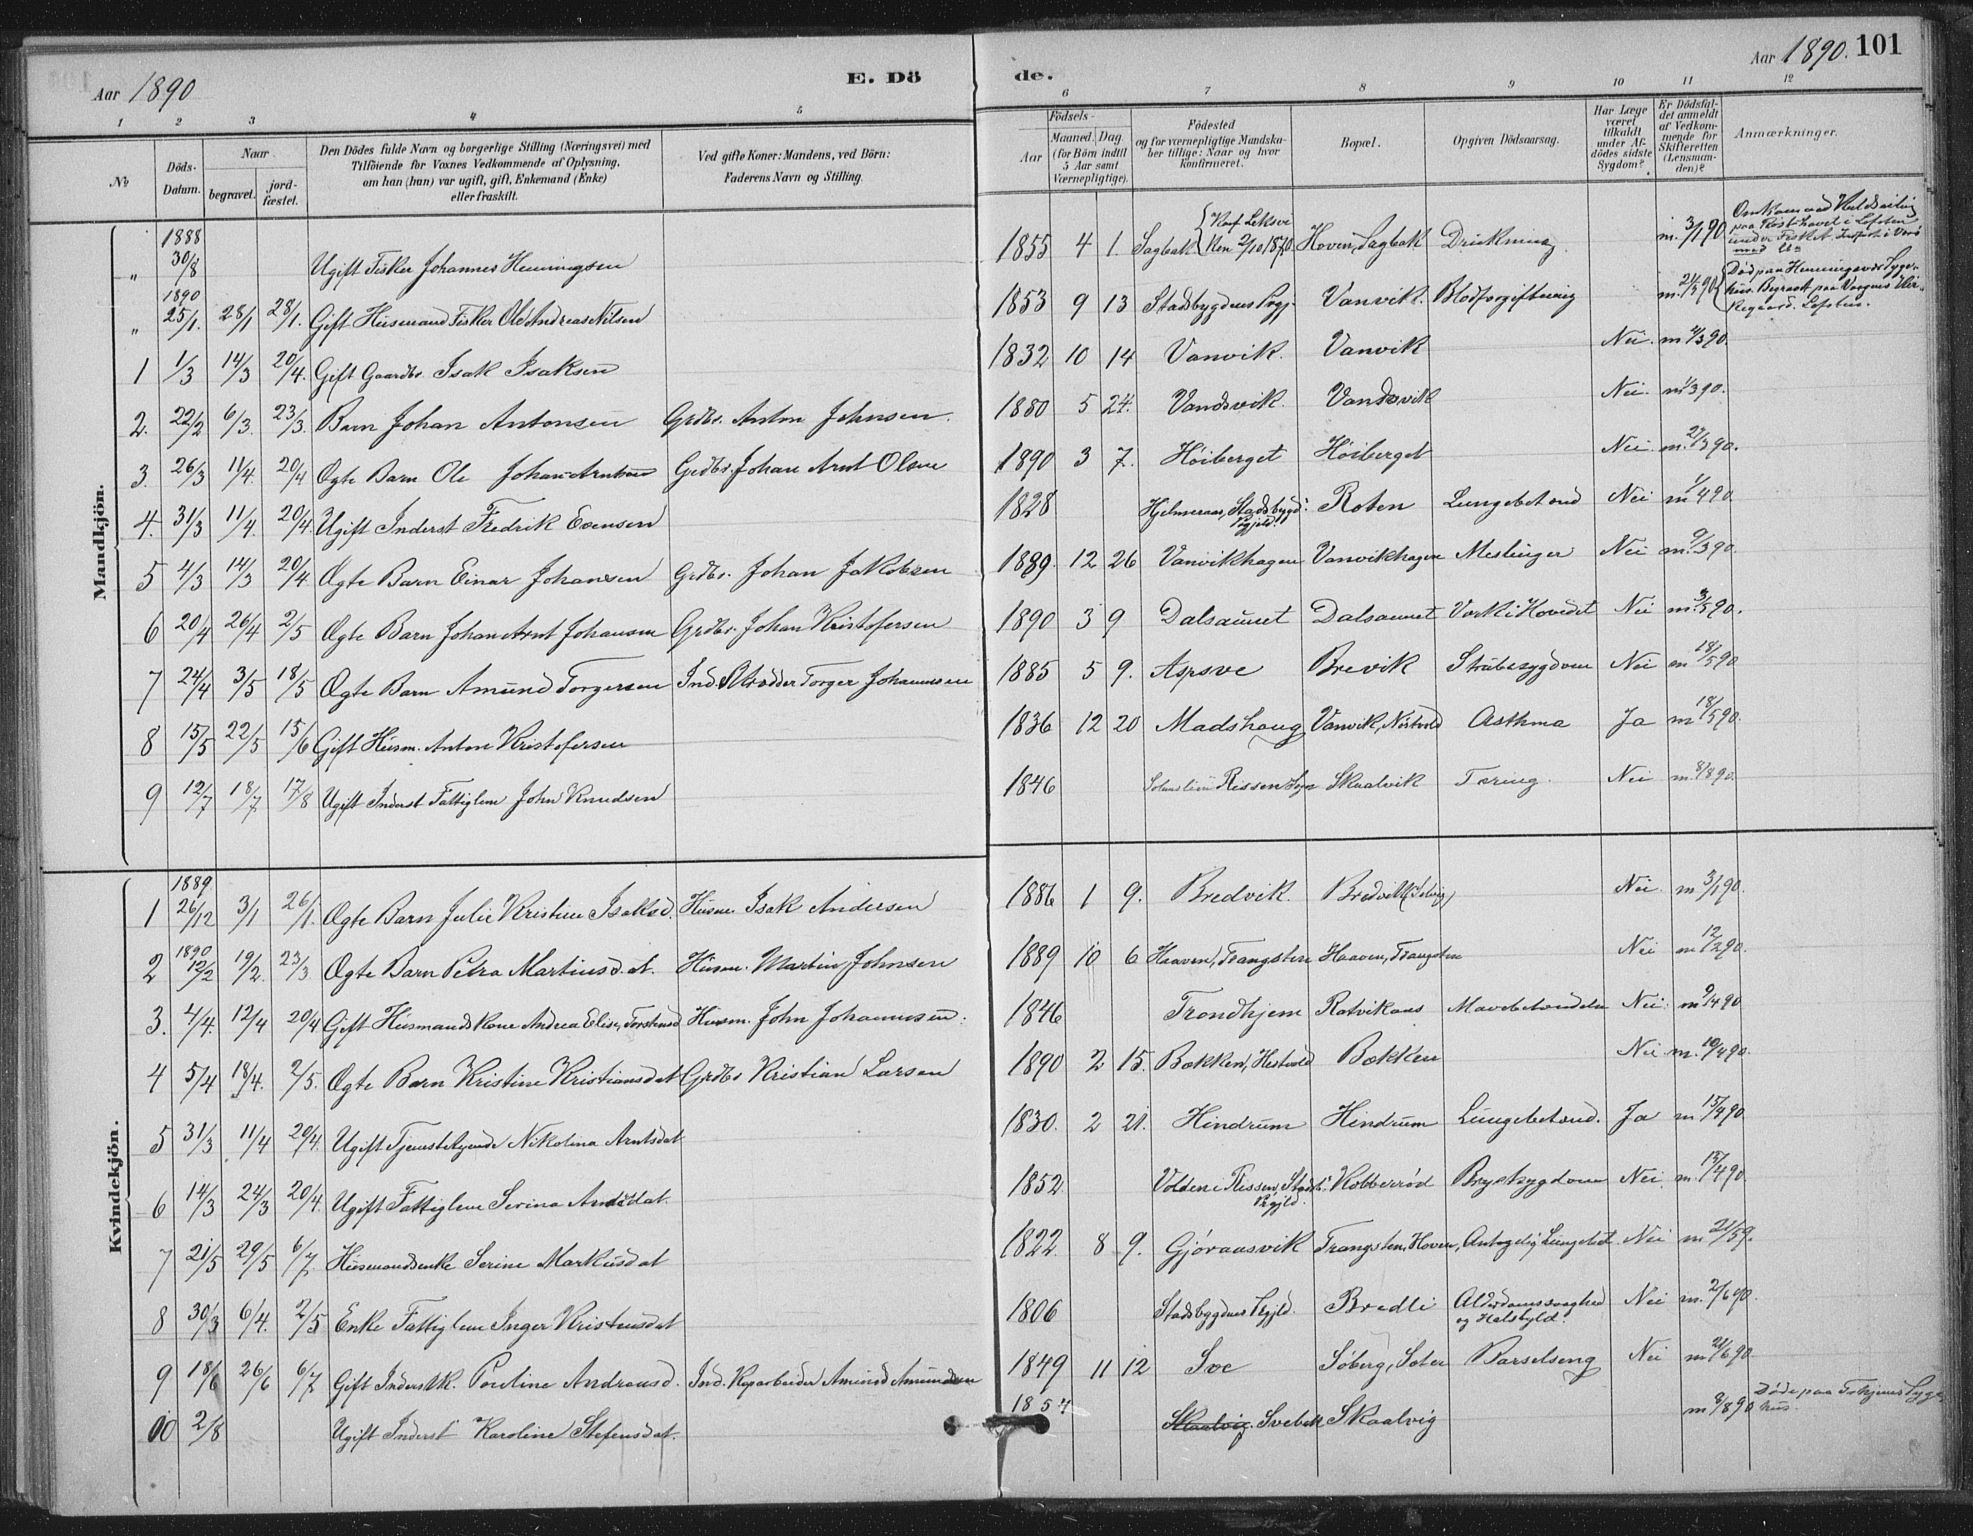 Aar 1890
E. Dö
de.
Aar 1890. 101
1 2 3 4 5 6 7 8 9 10 11 12
№
Döds-
Datum.
Naar
begravet.
jord-
fæstet.
Den Dödes fulde Navn og borgerlige Stilling (Næringsvei) med
Tilföiende for Voxnes Vedkommende af Oplysning,
om han (hun) var ugift, gift, Enkemand (Enke)
eller fraskilt.
Ved gifte Koner: Mandens, ved Börn:
Faderens Navn og Stilling.
Födsels-
Aar
Maaned. Dag
(for Börn indtil
5 Aar samt
Værnepligtige).
Födested
og for værnepligtige Mandska-
ber tillige: Naar og hvor
konfirmeret.
Bopæl.
Opgiven Dödsaarsag.
Har Læge
været
tilkaldt
under Af-
dödes sidste
Sygdom?
Er Dödsfal-
det anmeldt
af Vedkom-
mende for
Skifteretten
(Lensman-
den)?
Anmærkninger.
Mandkjön.
" 1888 30/8 Ugift Fisker Johannes Henningsen 1855 4 1. Sagbak Hoven, Sagbak Drukning m. 3/1 90
" 1890 25/1. 28/1 28/1. Gift Husmand Fisker Ole Andreas Nilsen 1853 9 13 Stadsbygdens Prgj. Vanvik. Blodforgiftning Død paa Henningsvær Syge-
hus. Begravet paa Vaagens Kir-
kegaard. Lofoten.
1 1/3 14/3 20/4. Gift Gaardbr. Isak Isaksen 1832 10 14 Vanvik. Vanvik Nei.
2. 22/2 6/3. 23/3. Barn Johan Antonsen Grdbr. Anton Johnsen. 1880 5 24. Vandsvik. Vandsvik Nei.
3. 26/3 11/4. 20/4 Ægte Barn Ole Johan Arntsen Grdbr. Johan Arnt Olsen 1890 3 7. Höiberget Höiberget Nei m. 27/3 90.
4. 31/3 11/4. 20/4. Ugift Inderst Fredrik Evensen 1828 Hjelmeraas, Stadsbygd. Prgjeld. Roten Lungebetænd Nei
5 4/3 14/3 20/4 Ægte Barn Einar Johansen Grdbr. Johan Jakobsen 1889. 12 26 Vanvikhagen Vanvikhagen Meslinger Nei
6 20/4 26/4 2/5 Ægte Barn Johan Arnt Johansen Grdbr. Johan Kristofersen 1890 3 9 Dalsaunet Dalsaunet Værk i Hovedet Nei
7 24/4 3/5 18/5 Ægte Barn Amund Torgersen Ind. Skrædder Torger Johannesen 1885 5 9. Brevik Strubesygdom Nei m 18/5 90
8 15/5 22/5 15/6 Gift Husm. Anton Kristofersen 1836 12 20 Madshaug Vanvik, Asthma Ja m 18/5 90.
9 12/7 18/7 17/8 Ugift Inderst Fattiglem John Knudsen 1846 Rissen Sogn Skaalvik Tæring. Nei m. 8/8 90.
Kvindekjön.
1 1889 26/12 3/1 26/1. Ægte Barn Julie Kristine Isaksd. Husm. Isak Andersen 1886 1 9. Bredvik. Bredvik Nei. m. 3/1 90.
2 1890 12/2 19/2. 23/3 Ægte Barn Petra Martinsd.at. Husm. Martin Johnsen 1889 10 6 Haaven, Trangsten Haaven, Trangsten Nei m 12/2 90.
3. 4/4. 12/4 20/4 Gift Husmandskone Andrea Elise Torstensd Husm. John Johannesen. 1846 Trondhjem Ratvikaas Mavebetændelse Nei. m 9/4 90
4 5/4 18/4. 2/5. Ægte Barn Kristine Kristiansdat Grdbr Kristian Larsen 1890 2 15. Bækken, Hestvold Bækken Nei m. 19/4 90.
5 31/3 11/4 20/4. Ugift Tjenestetyende Nikolina Arntsdat 1830. 2 21. Hindrum Hindrum Lungebetænd. Ja m 15/4 90.
6 14/3 24/3 20/4. Ugift Fattiglem Serina 1852 Volden i Rissen, Stadsb. Prgjld. Kobberrød Brystsygdom Nei. m. 15/4 90.
7 21/5 29/5 6/7. Husmandsenke Serine Markusdat 1822. 8 9. Gjøraasvik Trangsten, Hoven, Antagelig Lungebet. Nei m 21/5 9.
8 30/3 6/4. 2/5 Enke Fattiglem Inger Kristensdat 1806 Stadsbygdens Prgjld. Bredli Alderdomssvaghed
og Halsbyld. Nei m. 2/6 90.
9 18/6 26/6 6/7 Gift Inderstk. Pauline Andreasd. Ind. Reparbeider Amund Amundsen 1849 11 12 Sve Söberg, Sæter Barselseng Nei m 21/6 90.
10 2/8 Ugift Inderst Karoline Stefensdat. 1854 Skaalvig. Svebak Skaalvig m 9/8 90 Døde paa Trhjems Syge-
hus.